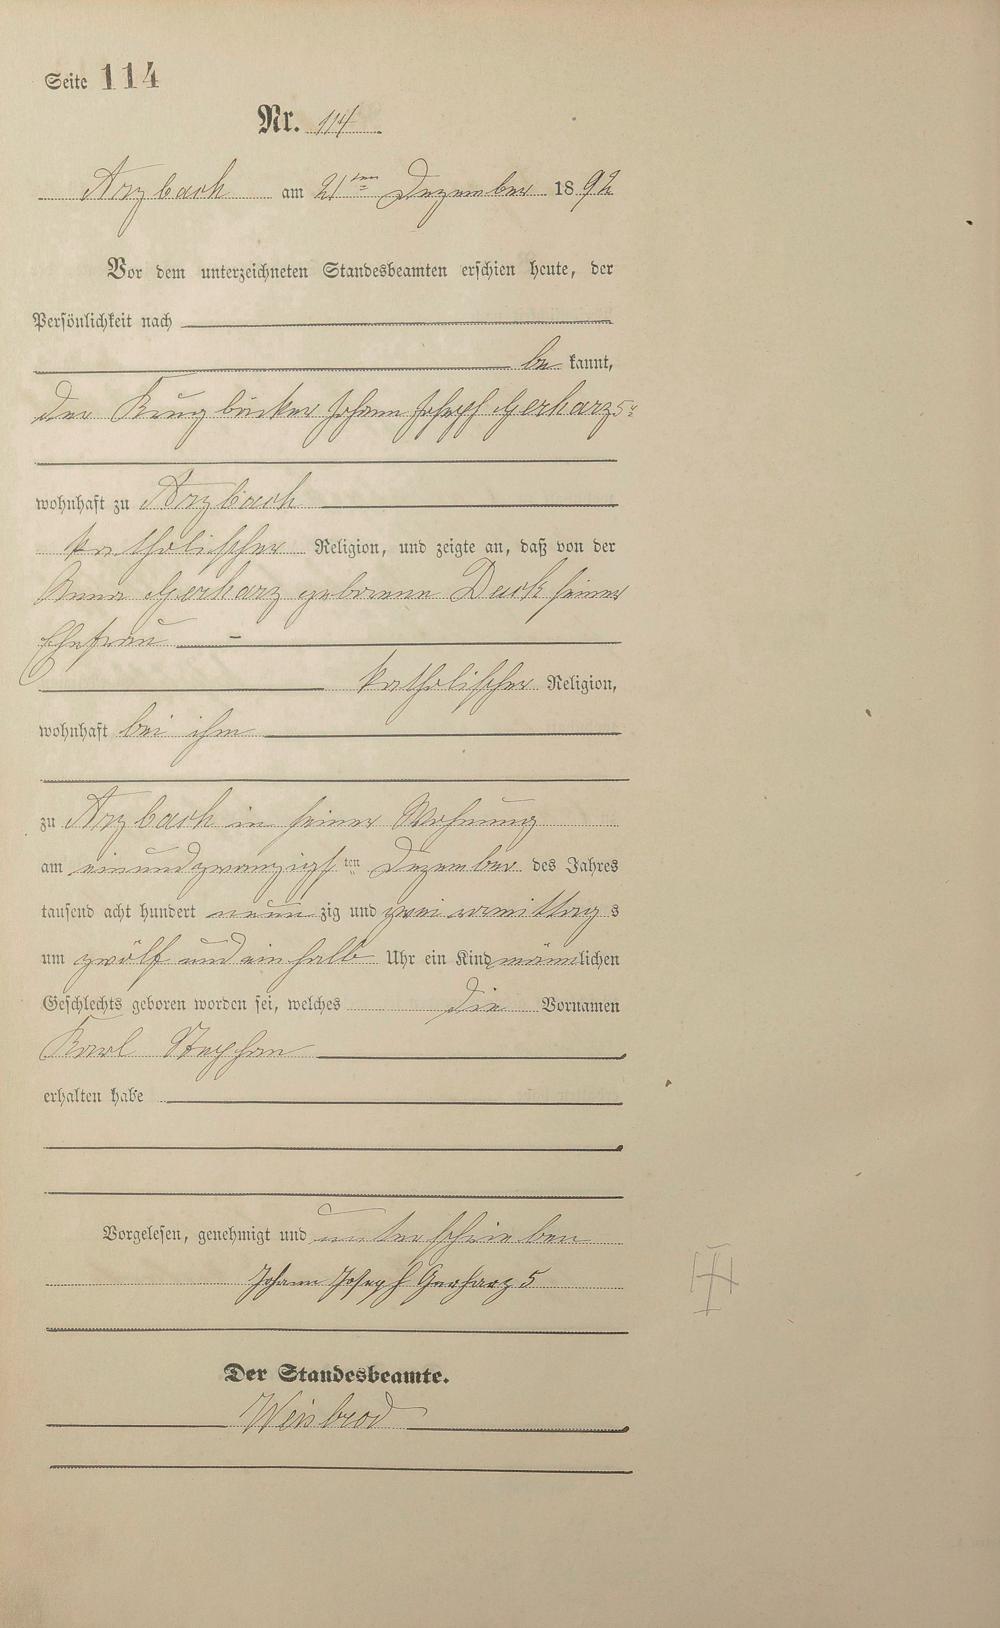 Seite 114
Nr. 114
Arzbach am 21ten Dezember 1892
Vor dem unterzeichneten Standesbeamten erschien heute, der
Persönlichkeit nach
be kannt,
der Krugbäcker Johann Joseph Gerharz 5r
wohnhaft zu Arzbach
katholischer Religion, und zeigte an, daß von der
Anna Gerharz geborene Duck seiner
Ehefrau
katholischer Religion,
wohnhaft bei ihm
zu Arzbach in seiner Wohnung
am einundzwanzigsten Dezember des Jahres
tausend acht hundert neun zig und zwei vormittags
um zwölf und ein halb Uhr ein Kind männlichen
Geschlechts geboren worden sei, welches die Vornamen
Karl Stephan
erhalten habe
Vorgelesen, genehmigt und unterschrieben
Johann Joseph Gerharz 5
Der Standesbeamte.
Weisbrod